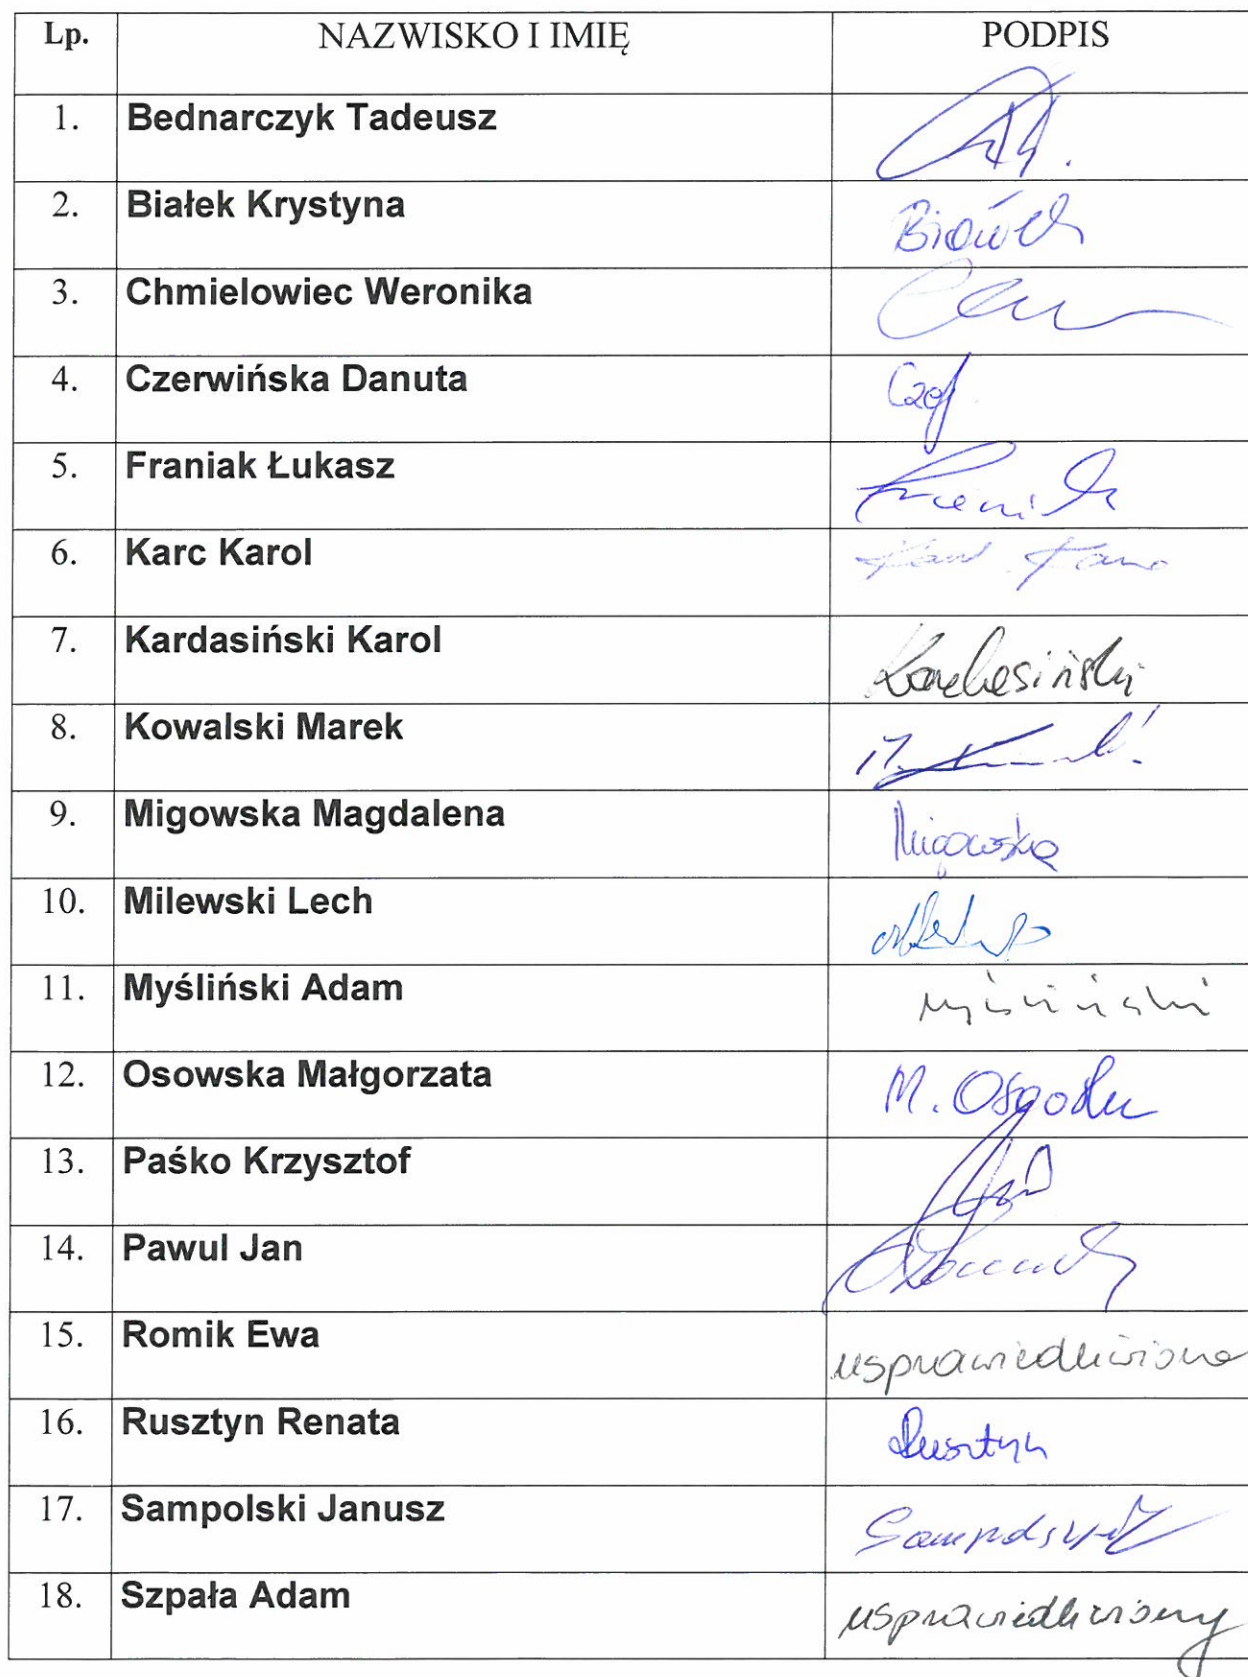 Lp. NAZWISKO I IMIĘ PODPIS
1. Bednarczyk Tadeusz
2. Białek Krystyna
3. Chmielowiec Weronika
4. Czerwińska Danuta
5. Franiak Łukasz
6. Karc Karol
7. Kardasiński Karol Kardasiński
8. Kowalski Marek
9. Migowska Magdalena Migowska
10. Milewski Lech
11. Myśliński Adam Myśliński
12. Osowska Małgorzata M.
13. Paśko Krzysztof
14. Pawul Jan
15. Romik Ewa usprawiedliwiona
16. Rusztyn Renata Rusztyn
17. Sampolski Janusz Sampolski
18. Szpała Adam usprawiedliwiony